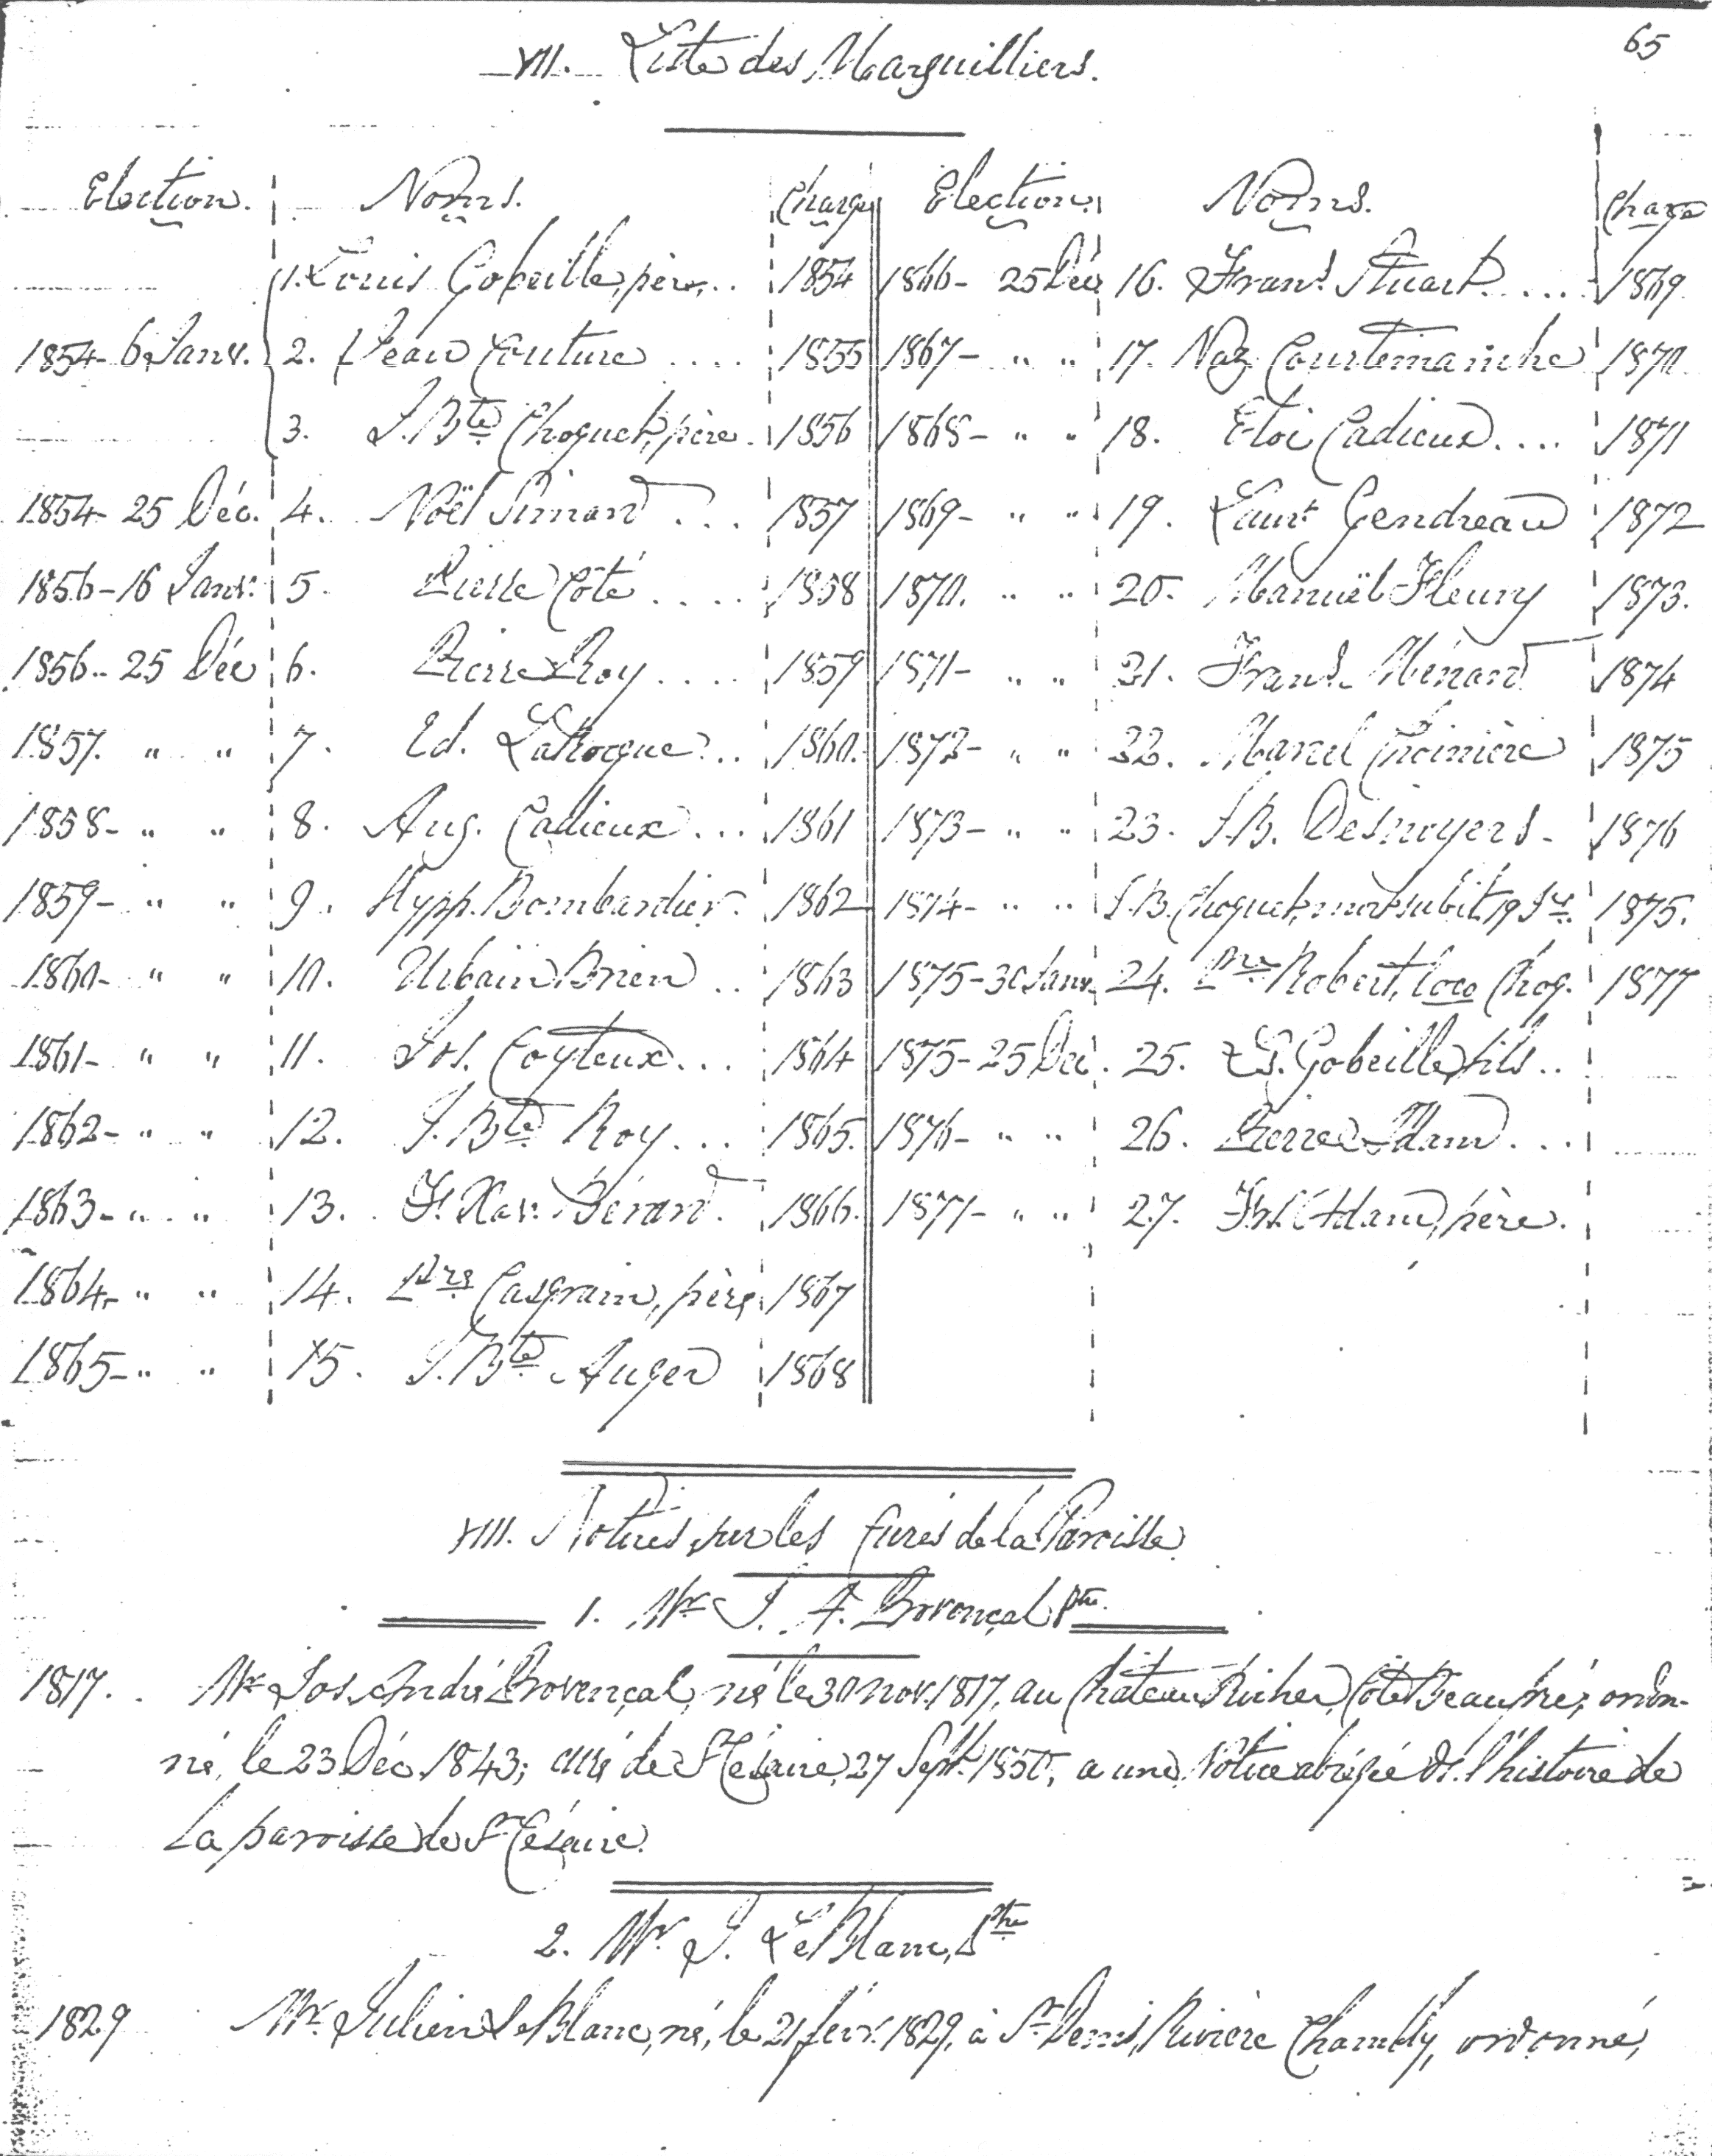 65
VII. Liste des Marguilliers.
Election. Noms. Charge Election. Noms. Charge
1. Louis Gobeille, père... 1854 1866- 25 Déc 16. Frans. Stuart.... 1869
1854- 6 Janv. 2. Jean Couture .... 1855 1867- " " 17. Naz. Courtemanche 1870
3. J. Bte Choquet, père. 1856 1868- " " 18. Eloi Cadieux.... 1871
1854- 25 Déc. 4. Noël Simard ... 1857 1869- " " 19. Laurt Gendreau 1872
1856-16 Janv. 5. Pierre Côté .... 1858 1870. " " 20. Manuël Fleury 1873.
1856- 25 Déc 6. Pierre Roy .... 1859 1871- " " 21. Frans. Ménard 1874
1857. " " 7. Ed. LaRocque... 1860. 1872- " " 22. Marcel Choinière 1875
1858- " " 8. Aug. Cadieux... 1861 1873- " " 23. J.B. Desnoyers- 1876
1859- " " 9. Hypp. Bombardier. 1862 1874- " " J.B. Choquet, mort subit. 19 Jr. 1875.
1860- " " 10. Urbain Brien .. 1863 1875-30 Janv. 24. Pre Robert, loco Choq. 1877
1861- " " 11. Jos. Coyteux... 1864 1875-25 Déc. 25. Ls. Gobeille, fils..
1862- " " 12. J. Bte Roy... 1865. 1876- " " 26. Pierre Adam...
1863- " " 13. F. Xav. Bérard. 1866. 1877- " " 27. Frs. Adam, père.
1864- " " 14. Pre Casgrain, père. 1867
1865- " " 15. J. Bte Auger 1868
VIII. Notices sur les Curés de la Paroisse.
1. Mr J. A. Provençal Ptre.
1817. Mr Jos. André Provençal, né le 30 nov. 1817, au Château Richer, Côte Beaupré; ordon-
né, le 23 Déc. 1843; curé de St Césaire, 27 Sept. 1850, a une Notice abrégée ds. l'histoire de
la paroisse de St Césaire.
2. Mr. J. LeBlanc, Ptre
1829 Mr. Julien LeBlanc, né, le 21 févr. 1829, à St Denis, Rivière Chambly, ordonné,